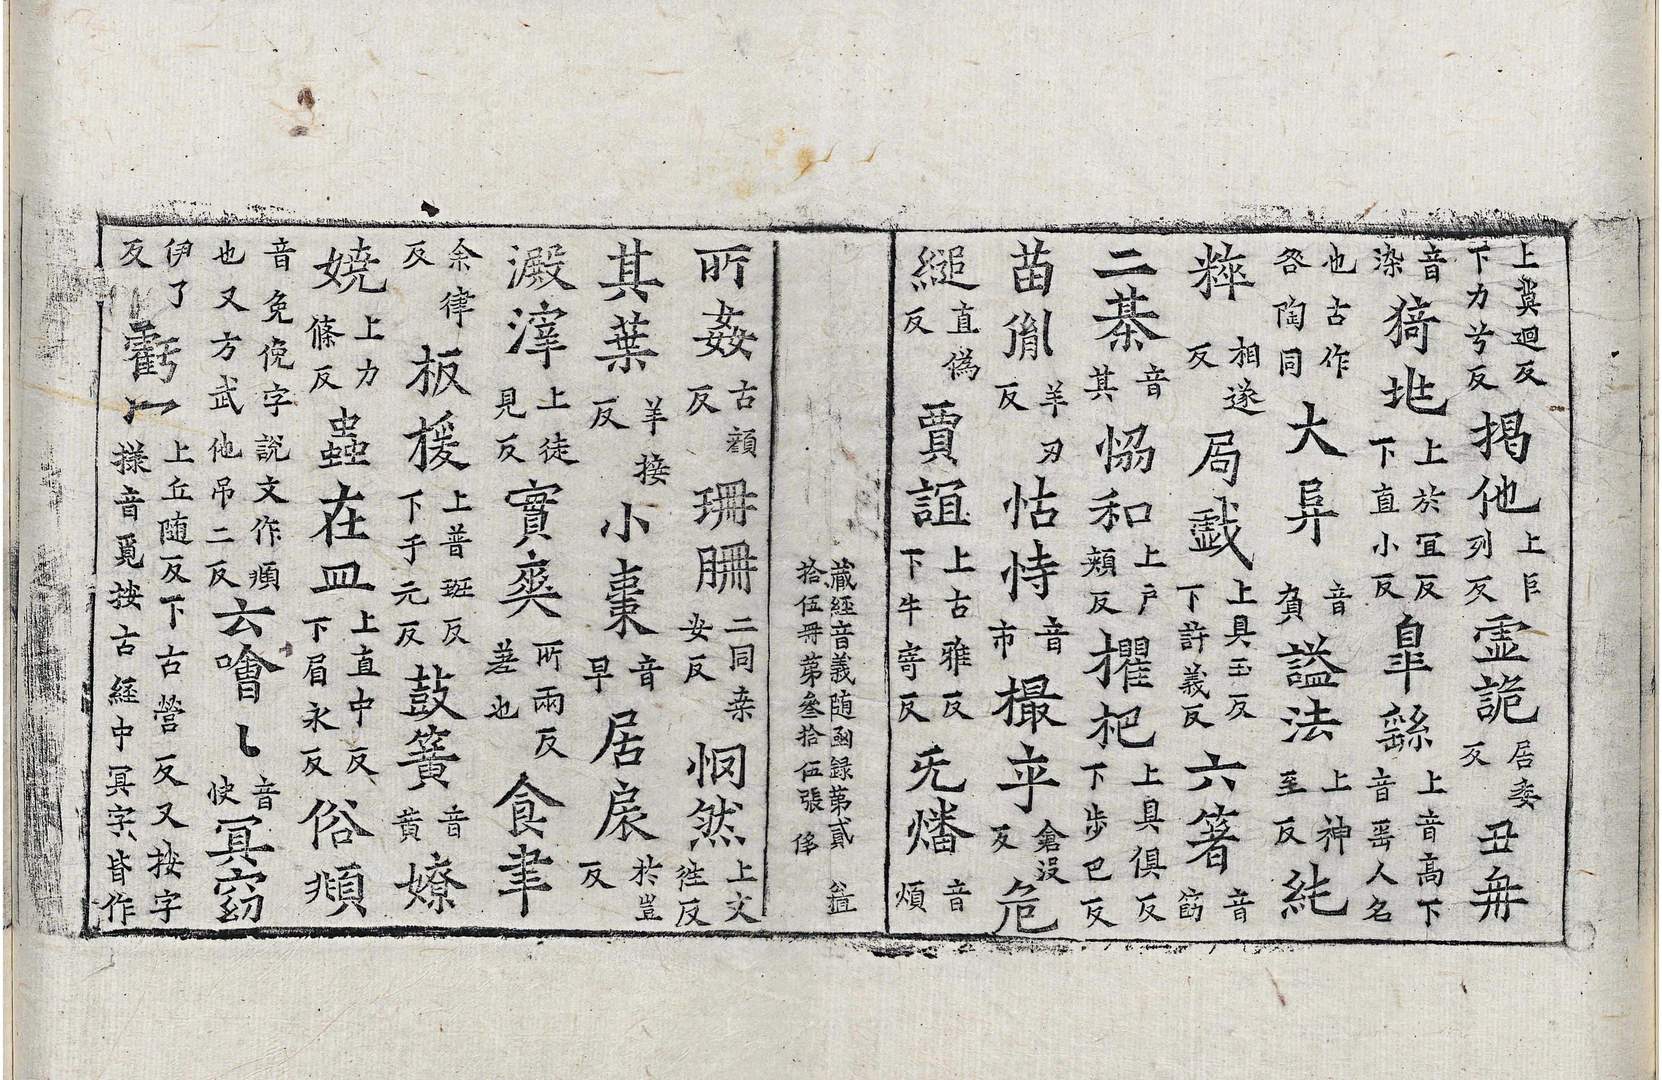 上冀迴反下力兮反掲他上巨列反𤫊詭居委反丑毋
音染猗𡉏上於冝反下直小反皐繇上音高下音咎人名
也古作咎陶同大㠯音負謚法上神至反紽
粹相遂反局戯上具玉反下許義反六箸音筯
二棊音其恊和上戶頰反欋杷上具俱反下步巴反
苗胤羊刃反怙恃音市撮乎倉沒反危
縋直偽反賈誼上古雅反下牛寄反旡燔音煩
藏經音義随函録第貳
拾伍冊第叄拾伍張
所姦古顔反珊𦙱二同桒安反惘然上文往反
其葉羊接反小棗音早居扆於豈反
澱滓上徒見反實爽所兩反差也食聿
余律反板援上普班反下于元反鼓簧音黄嫽
嬈上力條反蟲在皿上直中反下眉永反俗頫
音免俛字說文作頫也又方武他吊二反云噲音快㝠窈
伊了反虧上丘随反下古營反又按字樣音覓按古經中㝠字皆作